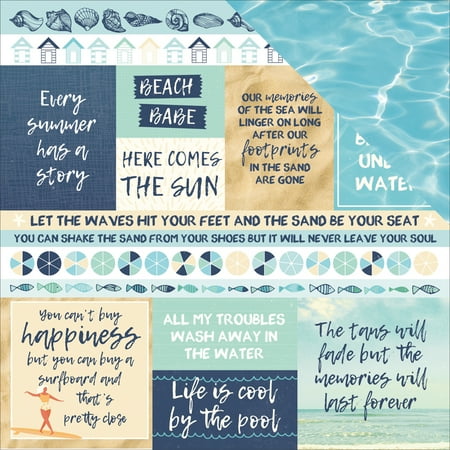 Every
summer
has a
story
BEACH
BABE
HERE COMES
THE SUN
OUR memories
OF THE SEA WILL
LINGER ON LONG
AFTER OUR
footprints
IN THE SAND
ARE GONE
WATER
LET THE WAVES HIT YOUR FEET AND THE SAND BE YOUR SEAT
YOU CAN SHAKE THE SAND FROM YOUR SHOES BUT IT WILL NEVER LEAVE YOUR SOUL
You can't buy
happiness
but you can buy a
surfboard and
that's
pretty close
ALL MY TROUBLES
WASH AWAY IN
THE WATER
Life is cool
by the pool
The tans will
fade but the
memories will
last forever